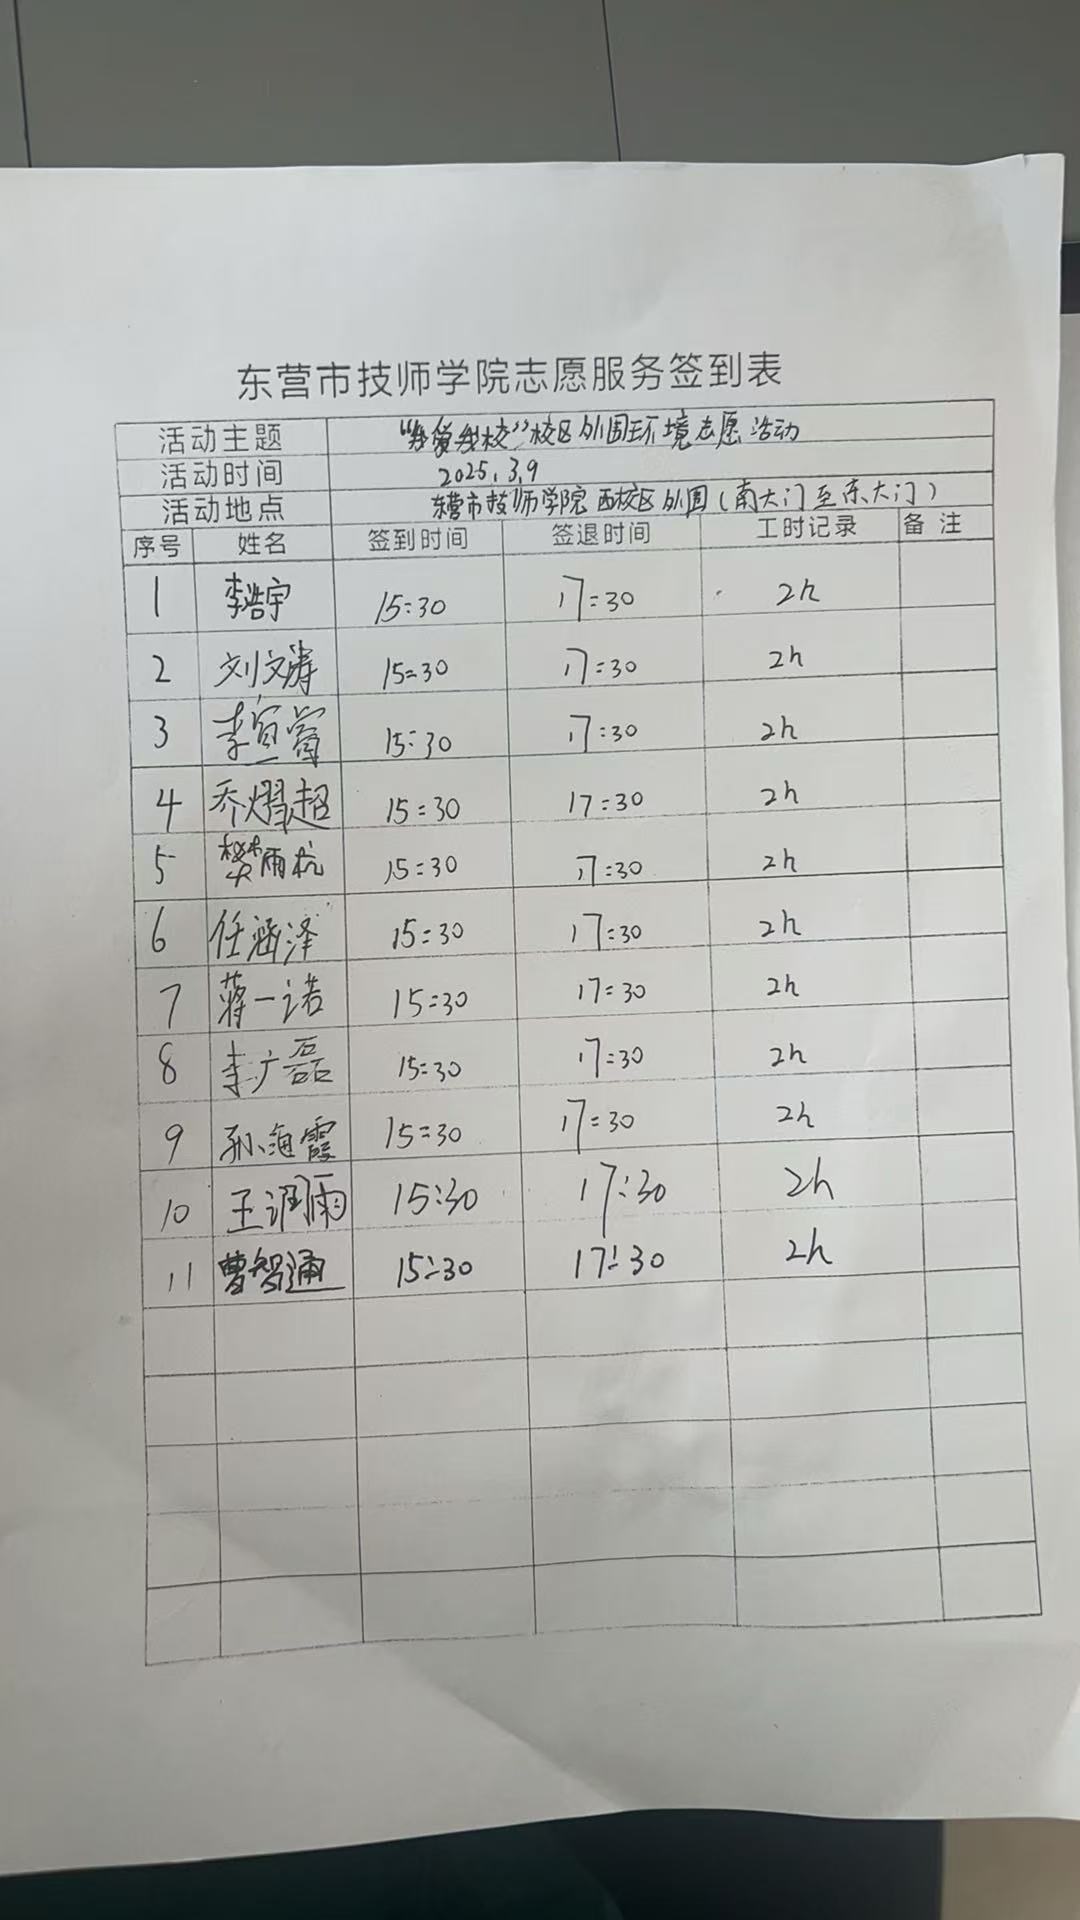 东营市技师学院志愿服务签到表
活动主题 “我爱我校”校区外围环境志愿活动
活动时间 2025.3.9
活动地点 东营市技师学院西校区外围(南大门至东大门)
序号 姓名 签到时间 签退时间 工时记录 备注
1 李浩宇 15:30 17:30 2h
2 刘文涛 15:30 17:30 2h
3 李宜 15:30 17:30 2h
4 乔熠超 15:30 17:30 2h
5 樊雨杭 15:30 17:30 2h
6 任涵泽 15:30 17:30 2h
7 蒋一诺 15:30 17:30 2h
8 李广磊 15:30 17:30 2h
9 孙海霞 15:30 17:30 2h
10 王润雨 15:30 17:30 2h
11 曹智通 15:30 17:30 2h